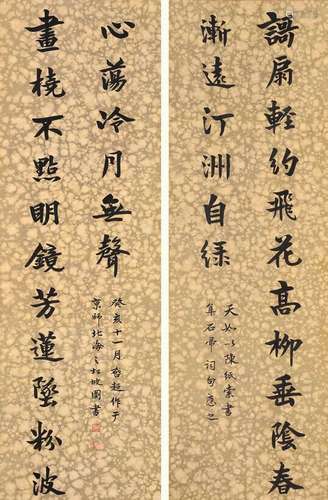 謌扇輕約飛花高柳垂陰春
漸遠汀洲自綠
天如以陳紙索書
集石帚詞句應之
畫橈不點明鏡芳蓮墜粉波
心蕩冷月無聲
癸亥十一月啟超作于
京師北海之松坡圖書